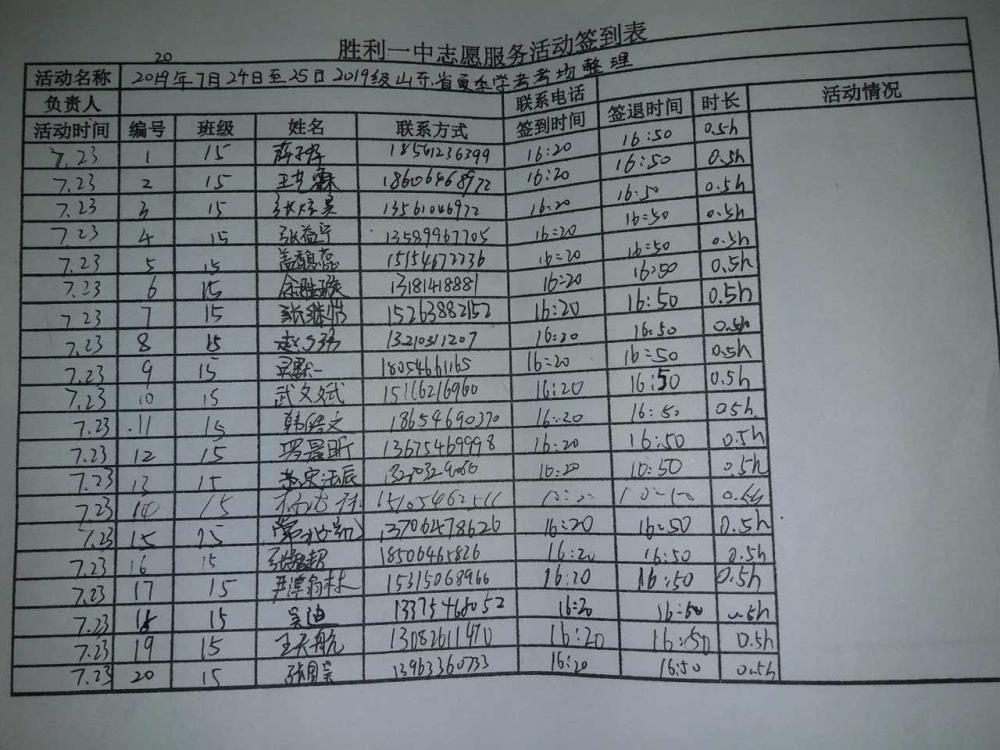 胜利一中志愿服务活动签到表
20
活动名称 2019年7月24日至25日2019级山东省夏季学考考场整理
负责人 联系电话
活动时间 编号 班级 姓名 联系方式 签到时间 签退时间 时长 活动情况
7.23 1 15 18561236399 16:20 16:50 0.5h
7.23 2 15 18606468972 16:20 16:50 0.5h
7.23 3 15 13561046972 16:20 16:50 0.5h
7.23 4 15 张益宁 13589967705 16:20 16:50 0.5h
7.23 5 15 盖馥蕊 15154672236 16:20 16:50 0.5h
7.23 6 15 13181418881 16:20 16:50 0.5h
7.23 7 15 张继怡 15263882152 16:20 16:50 0.5h
7.23 8 15 13210311207 16:20 16:50 0.5h
7.23 9 15 18054661165 16:20 16:50 0.5h
7.23 10 15 武文斌 15166216960 16:20 16:50 0.5h
7.23 11 15 韩皓文 18654690370 16:20 16:50 0.5h
7.23 12 15 13675469998 16:20 16:50 0.5h
7.23 13 15 16:20 16:50 0.5h
7.23 14 15 0.5h
7.23 15 15 13706478626 16:20 16:50 0.5h
7.23 16 15 18506465826 16:20 16:50 0.5h
7.23 17 15 尹潭翰林 15315068966 16:20 16:50 0.5h
7.23 18 15 吴迪 13375468052 16:20 16:50 0.5h
7.23 19 15 王天航 13082611470 16:20 16:50 0.5h
7.23 20 15 13963360733 16:20 16:50 0.5h